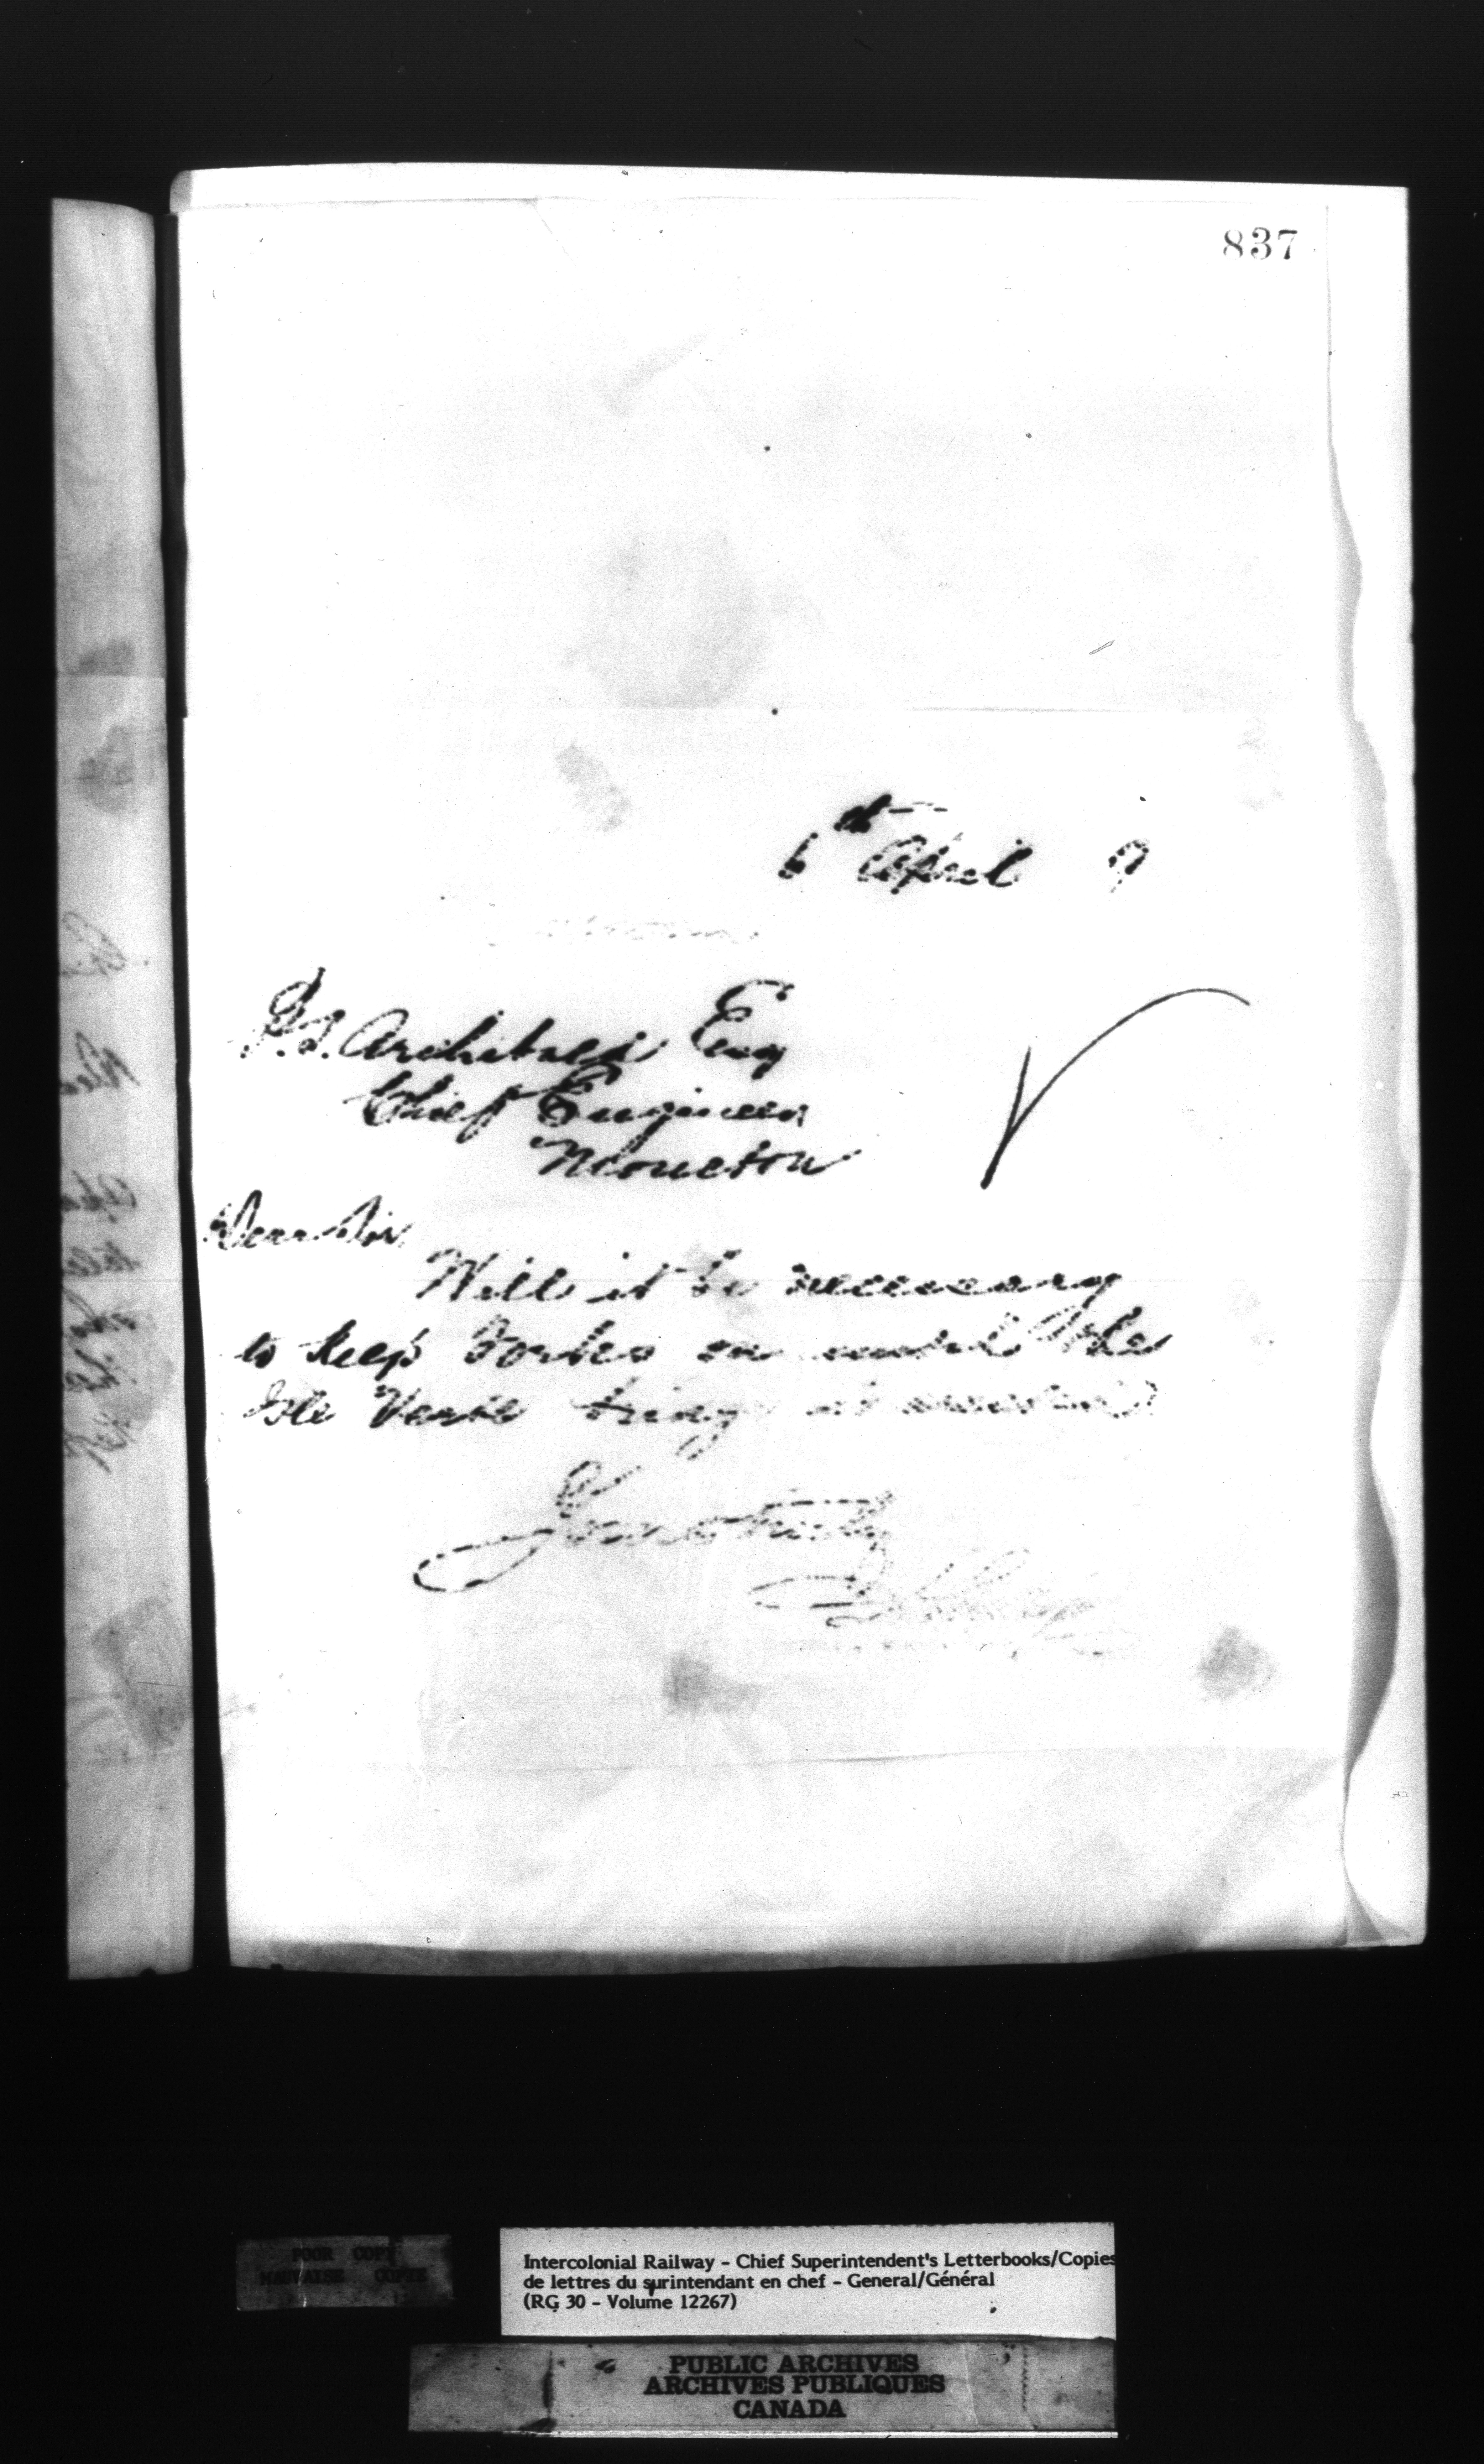 837
6th April 9
P.S. Archibald Esq
Chief Engineer
Moncton
Dear Sir
Will it be necessary
to keep on until the
Isle Verte
Yours truly
POOR COPY
MAUVAISE COPIE
Intercolonial Railway - Chief Superintendent's Letterbooks/Copies
de lettres du surintendant en chef - General/Général
(RG 30 - Volume 12267)
PUBLIC ARCHIVES
ARCHIVES PUBLIQUES
CANADA